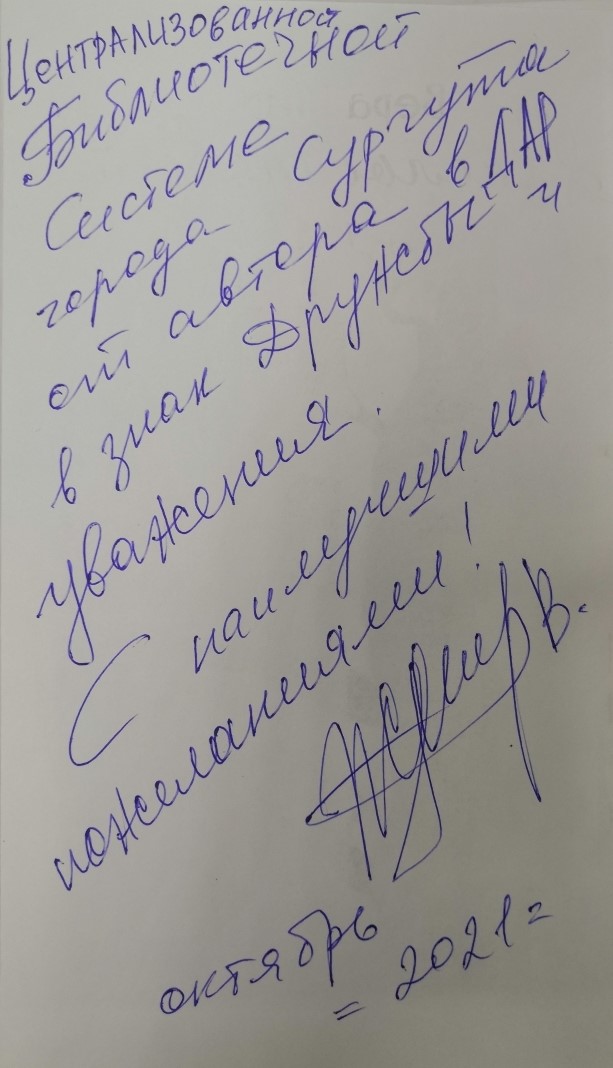 Централизованной
Библиотечной
Системе
города Сургута
от автора в ДАР
в знак Дружбы и
уважения.
С наилучшими
пожеланиями!
октябрь
= 2021 =